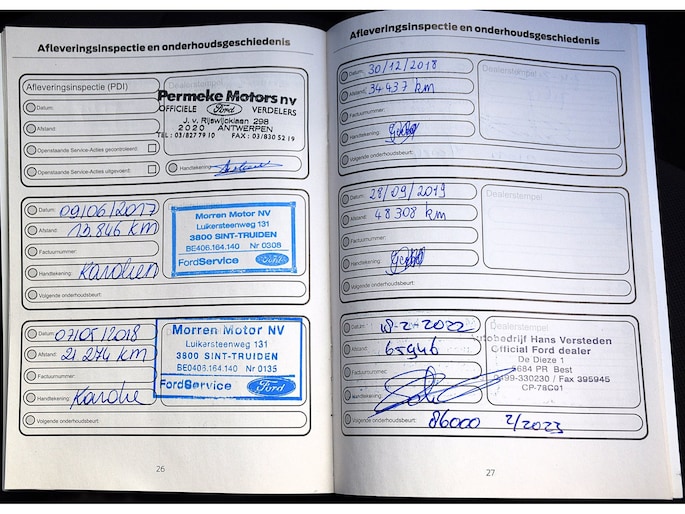 Afleveringsinspectie en onderhoudsgeschiedenis
Afleveringsinspectie (PDI)
Dealerstempel
Datum:
Afstand:
Openstaande Service-Acties gecontroleerd:
Openstaande Service-Acties uitgevoerd:
Permeke Motors nv
OFFICIELE Ford VERDELERS
J. v. Rijswijcklaan 298
2020 ANTWERPEN
TEL: 03/827 79 10 FAX: 03/830 52 19
Handtekening:
Datum: 09/06/2017
Afstand: 13.846 km
Factuurnummer:
Handtekening: Karolien
Volgende onderhoudsbeurt:
Morren Motor NV
Luikersteenweg 131
3800 SINT-TRUIDEN
BE406.164.140 Nr 0308
FordService Ford
Datum: 07/05/2018
Afstand: 21 274 km
Factuurnummer:
Handtekening:
Volgende onderhoudsbeurt:
Morren Motor NV
Luikersteenweg 131
3800 SINT-TRUIDEN
BE0406.164.140 Nr 0135
FordService Ford
26
Afleveringsinspectie en onderhoudsgeschiedenis
Datum: 30/12/2018
Afstand: 34 437 km
Factuurnummer:
Handtekening:
Volgende onderhoudsbeurt:
Dealerstempel
Datum: 28/09/2019
Afstand: 48 308 km
Factuurnummer:
Handtekening:
Volgende onderhoudsbeurt:
Dealerstempel
Datum: 18-2-2022
Afstand: 65946
Factuurnummer:
Handtekening:
Volgende onderhoudsbeurt: 86000 2/2023
Dealerstempel
tobedrijf Hans Versteden
Official Ford dealer
De Dieze 1
5684 PR Best
0499-330230 / Fax 395945
CP-78C01
27